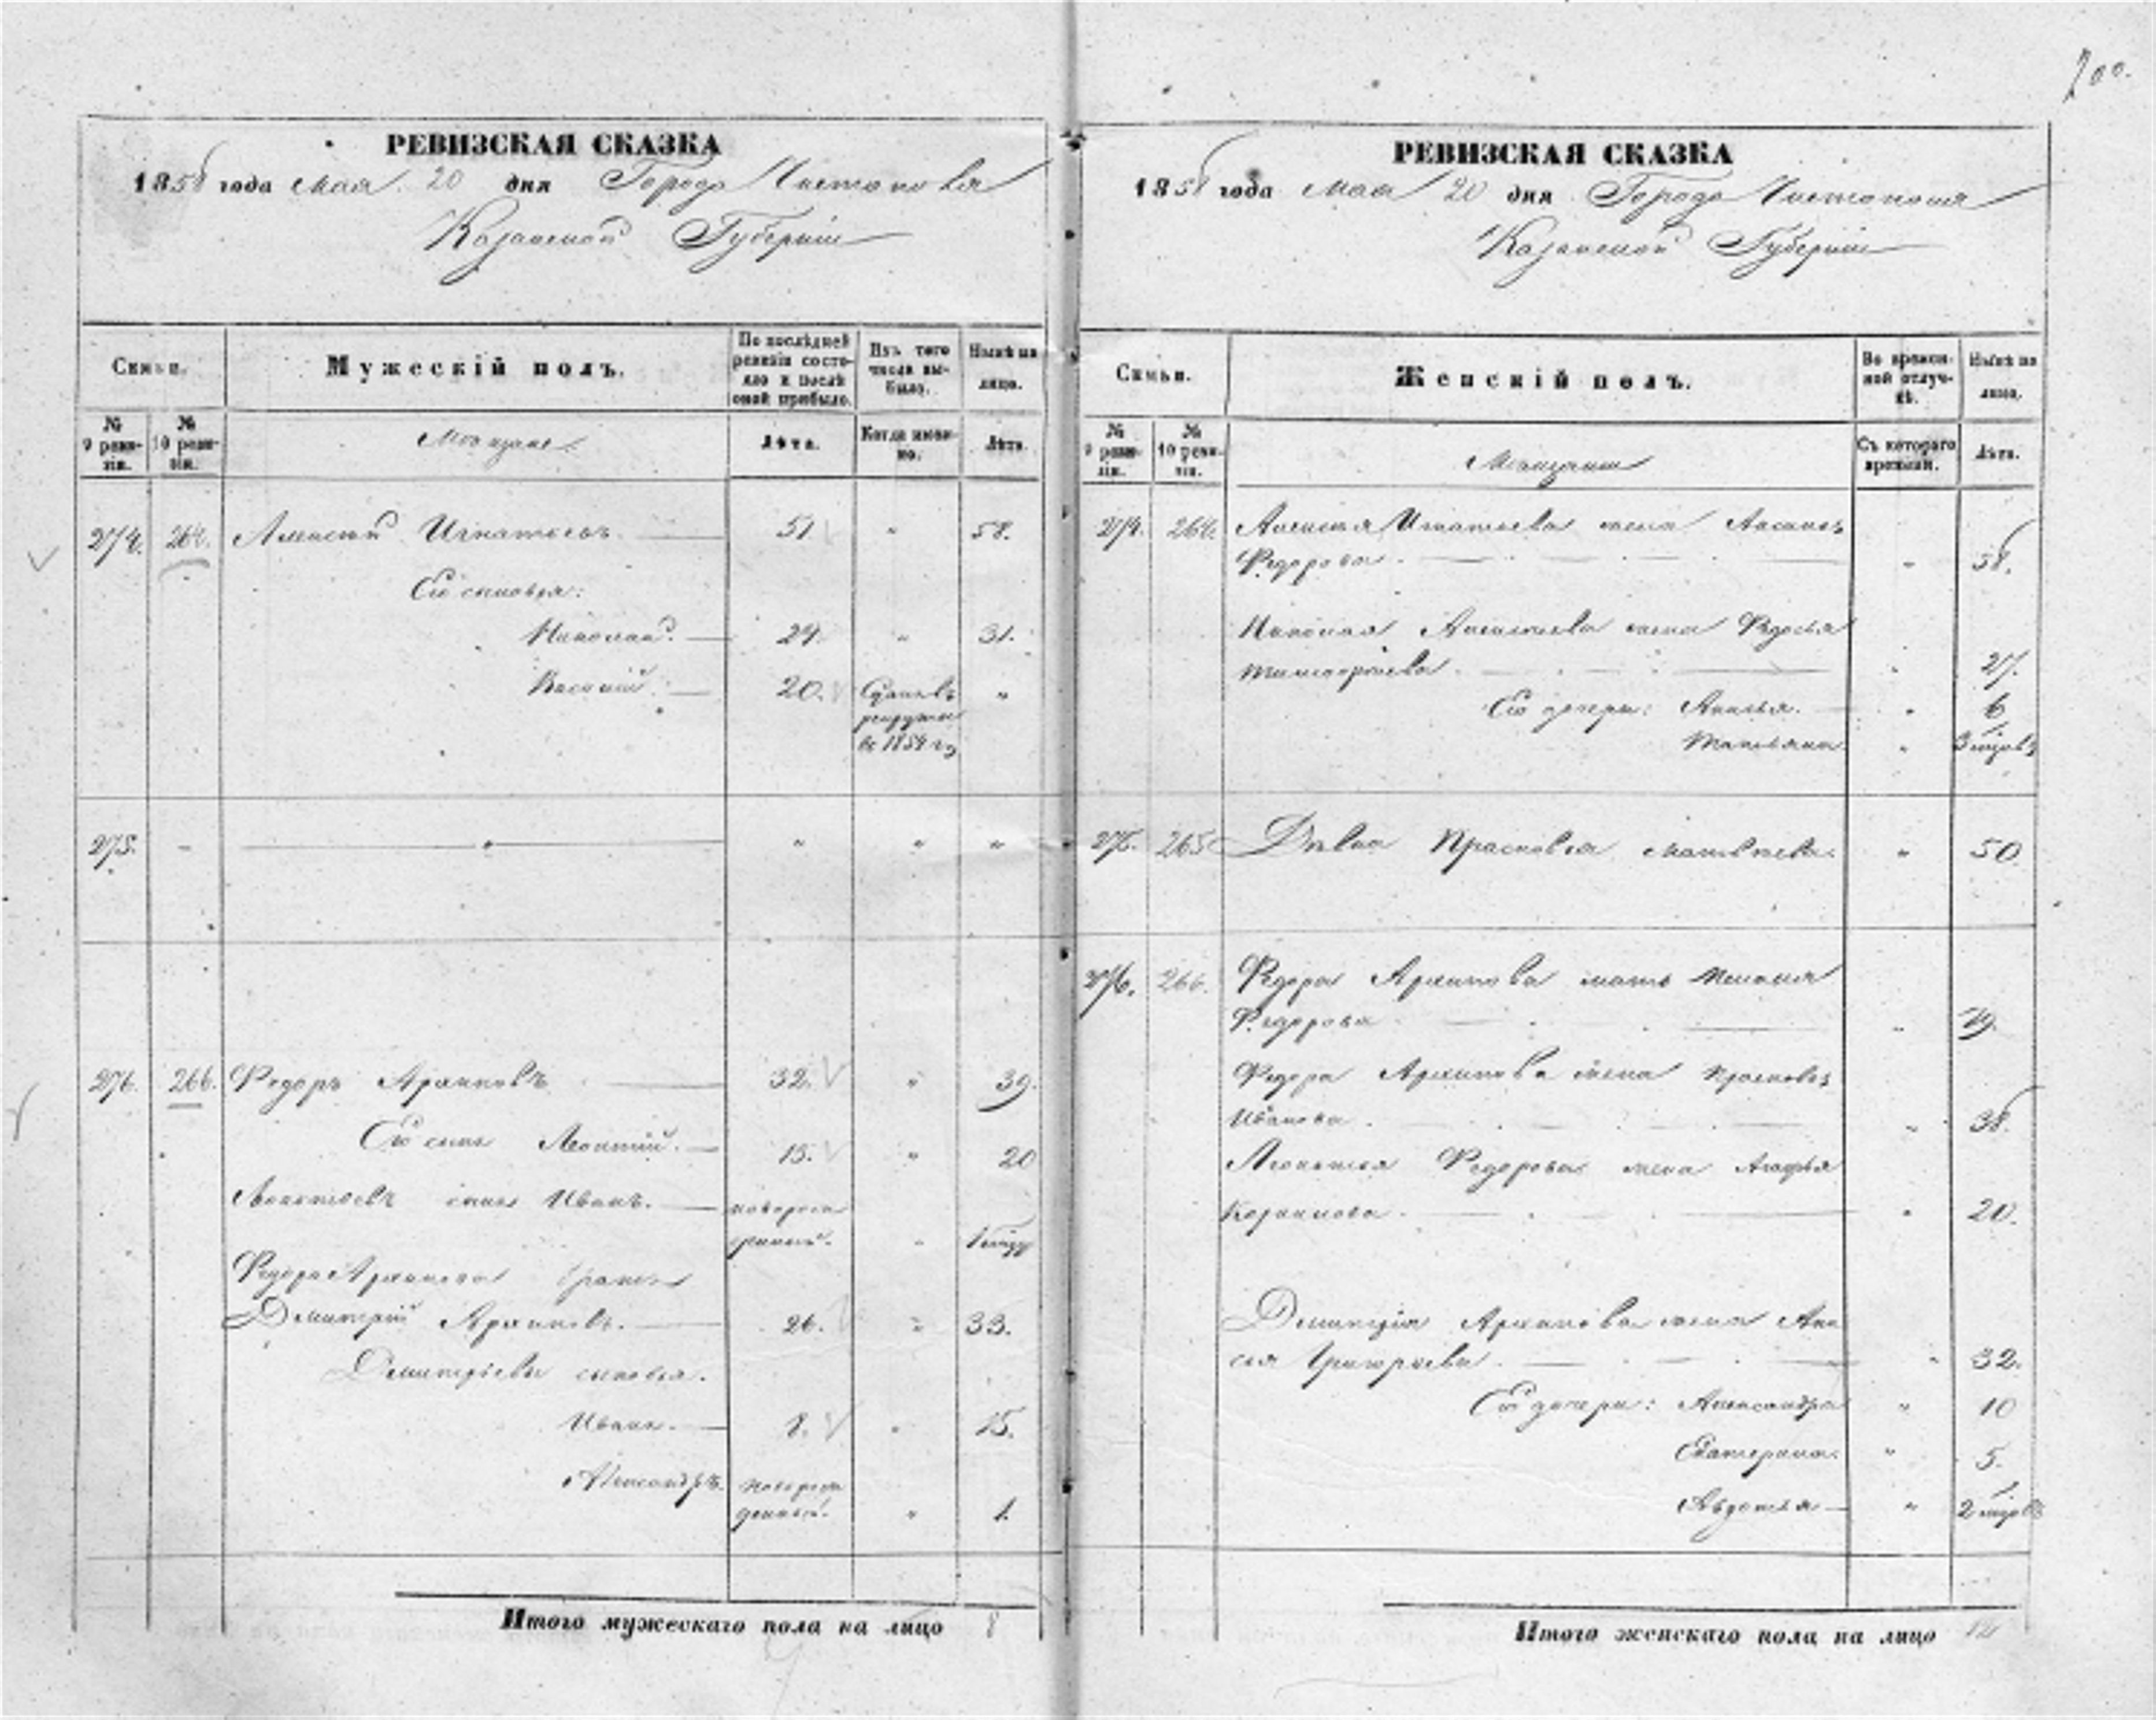 200.
РЕВИЗСКАЯ СКАЗКА
1858 года Мая 20 дня Города Чистополя
Казанской Губерніи
Семьи.
Мужескій полъ.
По послѣдней ревизіи состояло и послѣ оной прибыло.
Изъ того числа выбыло.
Нынѣ на лицо.
№ 9 ревизіи.
№ 10 ревизіи.
Мещане.
Лѣта.
Когда именно.
Лѣта.
274. 264. Алексѣй Игнатьевъ. 51 " 58.
Его сыновья:
Николай. 24. " 31.
Василий. 20. Сданъ въ "
рекруты
въ 1854 г.
275. - " " "
276. 266. Федоръ Архиповъ 32. " 39.
Его сынъ Леонтій. 13. " 20
Леонтьевъ сынъ Иванъ. новорож
денный. " 1 мѣсяц
Федора Архипова братъ
Дмитрій Архиповъ. 26. " 33.
Дмитріевы сыновья.
Иванъ. 8. " 15.
Александръ. новорож
денный. " 1.
Итого мужескаго пола на лицо 8
РЕВИЗСКАЯ СКАЗКА
1858 года Мая 20 дня Города Чистополя
Казанской Губерніи
Семьи.
Женскій полъ.
Во временной отлучкѣ.
Нынѣ на лицо.
№ 9 ревизіи.
№ 10 ревизіи.
Мещанки
Съ котораго времени.
Лѣта.
274. 264. Алексѣя Игнатьева жена
Федорова. " 58.
Николая Алексѣева жена Федосья
Тимофѣева. " 27.
Его дочери: " 6
Татьяна " 3 мѣсяцовъ
275. 265 Дѣвка Прасковья Матвѣева. " 50
276. 266. Федора Архипова мать
Федорова " 79.
Федора Архипова жена Прасковья
Иванова. " 38.
Леонтья Федорова жена Агафья
" 20.
Дмитрія Архипова жена Ани
сья Григорьева. " 32.
Его дочери: Александра " 10
Екатерина. " 5.
Авдотья " 2 мѣсяцовъ
Итого женскаго пола на лицо 12